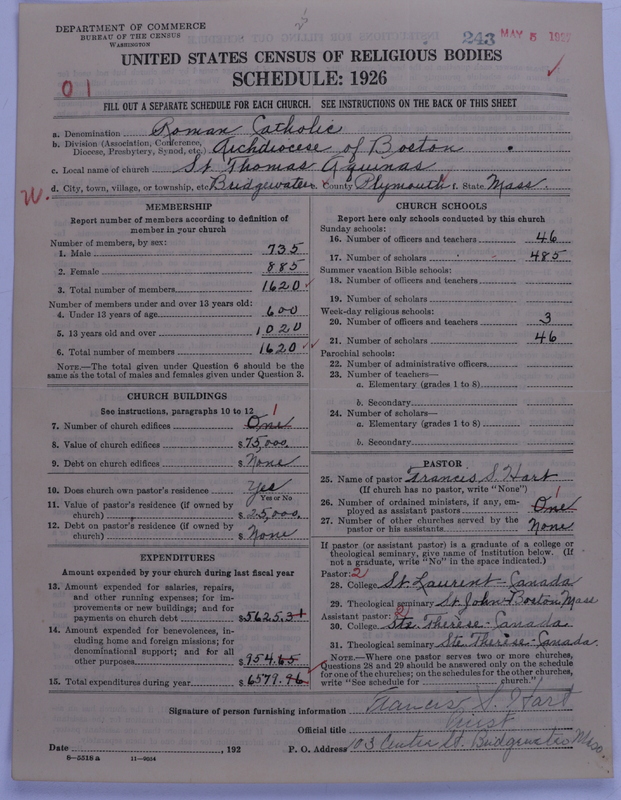 DEPARTMENT OF COMMERCE
BUREAU OF THE CENSUS
WASHINGTON
243 MAY 5 1927
UNITED STATES CENSUS OF RELIGIOUS BODIES
SCHEDULE: 1926
01
FILL OUT A SEPARATE SCHEDULE FOR EACH CHURCH. SEE INSTRUCTIONS ON THE BACK OF THIS SHEET
a. Denomination Roman Catholic
b. Division (Association, Conference, Diocese, Presbytery, Synod, etc.) Archdiocese of Boston
c. Local name of church St. Thomas Aquinas
W. d. City, town, village, or township, etc. Bridgewater e. County Plymouth f. State Mass.
MEMBERSHIP
Report number of members according to definition of
member in your church
Number of members, by sex:
1. Male 735
2. Female 885
3. Total number of members 1620
Number of members under and over 13 years old:
4. Under 13 years of age 600
5. 13 years old and over 1020
6. Total number of members 1620
NOTE.—The total given under Question 6 should be the
same as the total of males and females given under Question 3.
CHURCH BUILDINGS
See instructions, paragraphs 10 to 12
7. Number of church edifices One 1
8. Value of church edifices $75,000.
9. Debt on church edifices $ None
10. Does church own pastor's residence Yes
Yes or No
11. Value of pastor's residence (if owned by
church) $25,000.
12. Debt on pastor's residence (if owned by
church) $ None
EXPENDITURES
Amount expended by church during last fiscal year
13. Amount expended for salaries, repairs,
and other running expenses; for im-
provements or new buildings; and for
payments on church debt $5625.31
14. Amount expended for benevolences, in-
cluding home and foreign missions; for
denominational support; and for all
other purposes $954.65
15. Total expenditures during year $6579.96
CHURCH SCHOOLS
Report here only schools conducted by this church
Sunday schools:
16. Number of officers and teachers 46
17. Number of scholars 485
Summer vacation Bible schools:
18. Number of officers and teachers
19. Number of scholars
Week-day religious schools:
20. Number of officers and teachers 3
21. Number of scholars 46
Parochial schools:
22. Number of administrative officers
23. Number of teachers—
a. Elementary (grades 1 to 8)
b. Secondary
24. Number of scholars—
a. Elementary (grades 1 to 8)
b. Secondary
PASTOR
25. Name of pastor Francis S. Hart
(If church has no pastor, write "None")
26. Number of ordained ministers, if any, em-
ployed as assistant pastors One 1
27. Number of other churches served by the
pastor or his assistants None
If pastor (or assistant pastor) is a graduate of a college or
theological seminary, give name of Institution below. (If
not a graduate, write "No" in the space indicated.)
Pastor: 2
28. College St. Laurent-Canada
29. Theological seminary St. John-Boston Mass
Assistant pastor: 2
30. College Ste. Therese-Canada
31. Theological seminary Ste. Therese-Canada.
NOTE.—Where one pastor serves two or more churches,
Questions 28 and 29 should be answered only on the schedule
for one of the churches; on the schedules for the other churches,
write "See schedule for church."
Signature of person furnishing information Francis S. Hart
Official title Priest
Date , 192 P. O. Address 103 Center St. Bridgewater Mass.
8—5518 a 11—9654